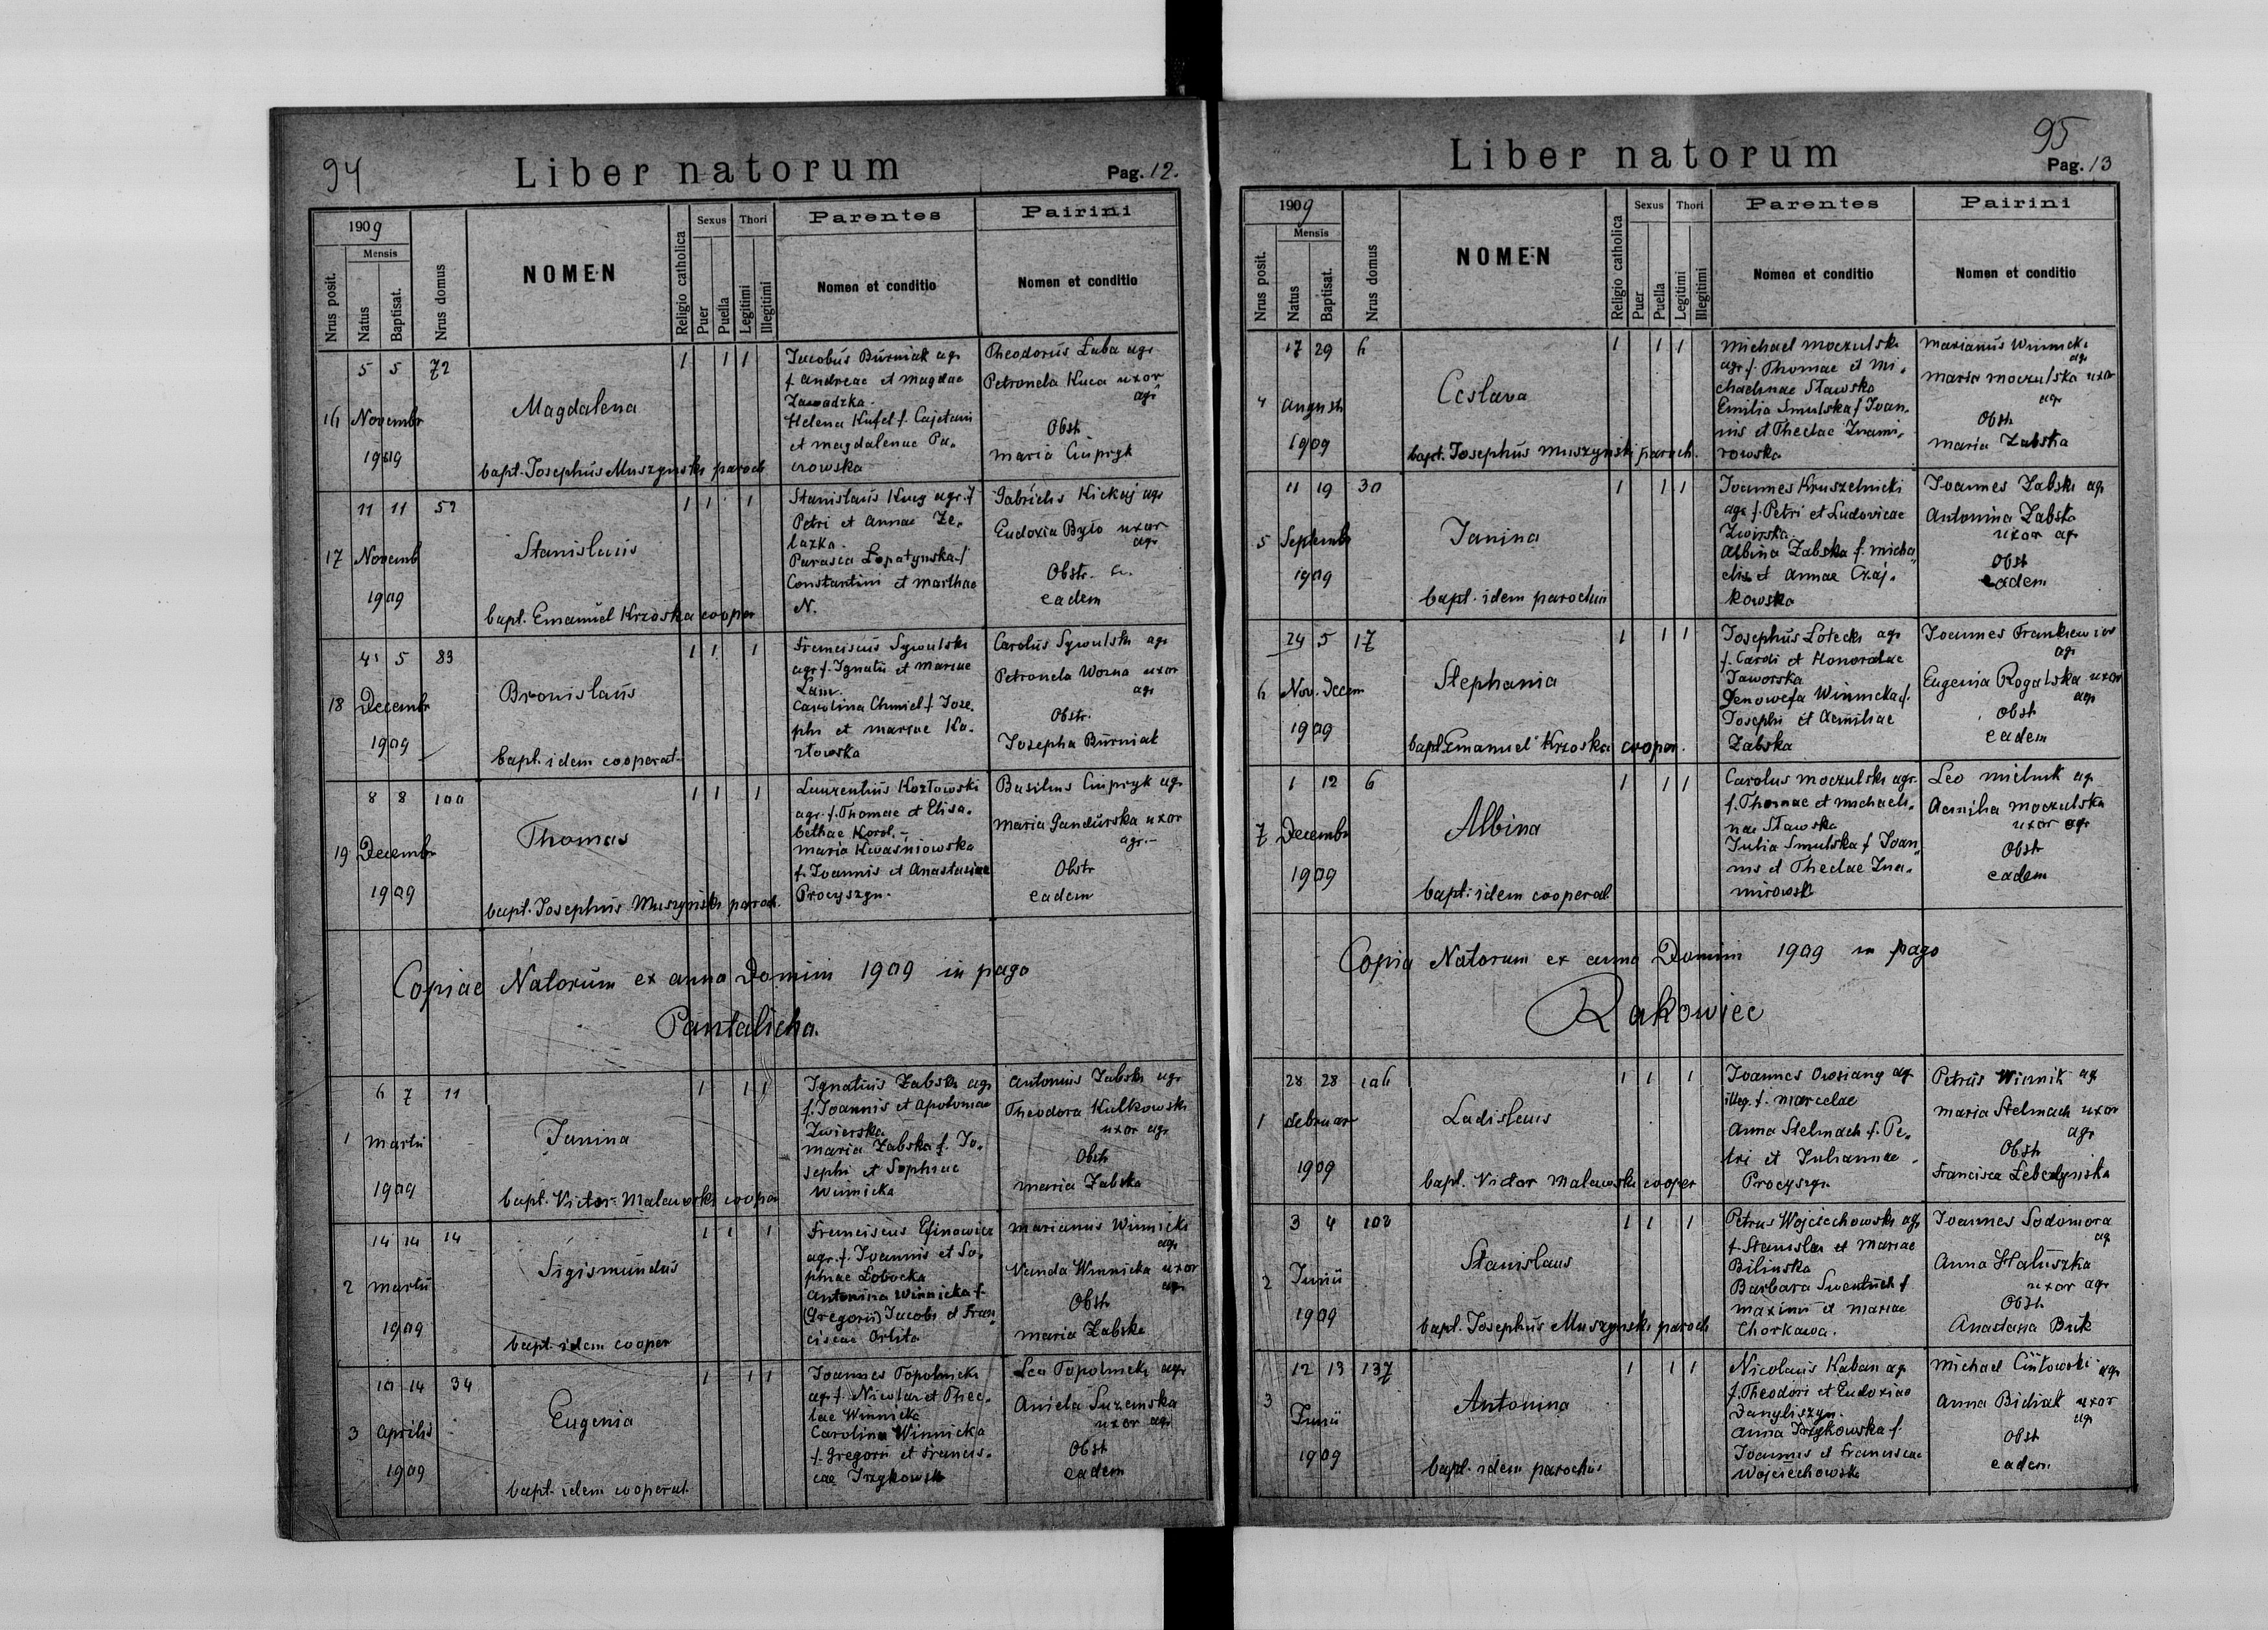 94
Liber natorum
Pag. 12.
1909
Nrus posit.
Mensis
Natus
Baptisat.
Nrus domus
NOMEN
Religio catholica
Sexus
Puer
Puella
Thori
Legitimi
Illegitimi
Parentes
Nomen et conditio
Pairini
Nomen et conditio
16
5 5 72
Novembr
1909
Magdalena
bapt. Josephus Muszynski paroch
1 1 1
Jacobus Burniak agr
f. Andreae et Magdae
Zawadzka.
Helena Kufel f. Cajetani
et Magdalenae Pa-
crowska
Theodorus Łuba agr
Petronela Kuca uxor
agr
Obst
Maria Ciupryk
17
11 11 52
Novemb
1909
Stanislaus
bapt. Emanuel Krzoska cooper
1 1 1
Stanislaus Kucz agr. f
Petri et Annae Ze-
lazka.
Parasca Łopatynska f
Constantini et Marthae
N.
Gabrielis Kickaj agr
Eudoxia Bylo uxor
agr
Obstr.
eadem
18
4 5 83
Decembr
1909
Bronislaus
bapt. idem cooperat.
1 1 1
Franciscus Sywulski
agr f. Ignatii et Mariae
Lam.
Carolina Chmiel f. Jose-
phi et Mariae Ko-
złowska
Carolus Sywulski agr
Petronela Wozna uxor
agr
Obstr.
Josepha Burniak
19
8 8 100
Decembr
1909
Thomas
bapt. Josephus Muszynski paroch.
1 1 1
Laurentius Kozłowski
agr. f. Thomae et Elisa-
bethae Korol.
Maria Kwaśniowska
f. Joannis et Anastasiae
Procyszyn.
Basilius Ciupryk agr
Maria Gandurska uxor
agr.
Obstr
eadem
Copiae Natorum ex anno Domini 1909 in pago
Pantalicha.
1
6 7 11
Martii
1909
Janina
bapt. Victor Malawski cooper
1 1 1
Ignatius Zabski agr
f. Joannis et Apoloniae
Zwierska
Maria Zabska f. Jo-
sephi et Sophiae
Winnicka
Antonius Zabski agr
Theodora Kulkowski
uxor agr
Obstr
Maria Zabska
2
14 14 14
Martii
1909
Sigismundus
bapt. idem cooper
1 1 1
Franciscus Efinowicz
agr. f. Joannis et So-
phiae Łobocka
Antonina Winnicka f.
(Gregorii) Jacobi et Fran-
ciscae Orlita
Marianus Winnicki
agr
Vanda Winnicka uxor
agr
Obstr
Maria Zabska
3
10 14 34
Aprilis
1909
Eugenia
bapt. idem cooperat.
1 1 1
Joannes Topolnicki
agr f. Nicolai et Thec-
lae Winnicka
Carolina Winnicka
f. Gregorii et Francis-
cae Irzykowsk
Leo Topolnicki agr
Aniela Suzemska
uxor agr
Obst
eadem
95
Liber natorum
Pag. 13
1909
Nrus posit.
Mensis
Natus
Baptisat.
Nrus domus
NOMEN
Religio catholica
Sexus
Puer
Puella
Thori
Legitimi
Illegitimi
Parentes
Nomen et conditio
Pairini
Nomen et conditio
4
17 29 6
Augusti
1909
Ceslava
bapt. Josephus Muszynski paroch.
1 1 1
Michael Moczulski
agr f. Thomae et Mi-
chaelinae Stawska
Emilia Smulska f Joan-
nis et Theclae Znami-
rowska
Marianus Winnicki
agr
Maria Moczulska uxor
agr
Obst
Maria Zabska
5
11 19 30
Septembr
1909
Janina
bapt. idem parochus
1 1 1
Joannes Kruszelnicki
agr f. Petri et Ludovicae
Zwirska.
Albina Zabska f. Micha-
elis et Annae Czaj-
kowska
Joannes Zabski agr
Antonina Zabska
uxor agr
Obst
eadem
6
24 5 17
Nov. Decem
1909
Stephania
bapt. Emanuel Krzoska cooper.
1 1 1
Josephus Łotecki agr
f. Caroli et Honoratae
Jaworska
Genowefa Winnicka f.
Josephi et Aemiliae
Zabska
Joannes Frankiewicz
agr
Eugenia Rogalska uxor
agr
Obst
eadem
7
1 12 6
Decembr
1909
Albina
bapt. idem cooperat.
1 1 1
Carolus Moczulski agr.
f. Thomae et Michaeli-
nae Stawska
Julia Smulska f Joan-
nis et Theclae Zna-
mirowsk
Leo Mielnik agr
Aemilia Moczulska
uxor agr
Obstr
eadem
Copia Natorum ex anno Domini 1909 in pago
Rakowiec
1
28 28 106
Februar
1909
Ladislaus
bapt. Victor Malawski cooper
1 1 1
Joannes Owsiany agr
illeg. f. Marcelae
Anna Stelmach f. Pe-
tri et Juliannae
Procyszyn
Petrus Winnik agr
Maria Stelmach uxor
agr
Obst
Francisca Łebedynska
2
3 4 102
Junii
1909
Stanislaus
bapt. Josephus Muszynski paroch
1 1 1
Petrus Wojciechowski agr
f. Stanislai et Mariae
Bilinska
Barbara Swentuch f
Maximi et Mariae
Chorkawa.
Joannes Sodomora
agr
Anna Hałuszka
uxor agr
Obst
Anastasia Buk
3
12 13 137
Junii
1909
Antonina
bapt. idem parochus
1 1 1
Nicolaus Kaban agr
f. Theodori et Eudoxiae
Danyliszyn.
Anna Irzykowska f.
Joannis et Franciscae
Wojciechowska
Michael Ciitowski agr
Anna Bidiak uxor
agr
Obst
eadem